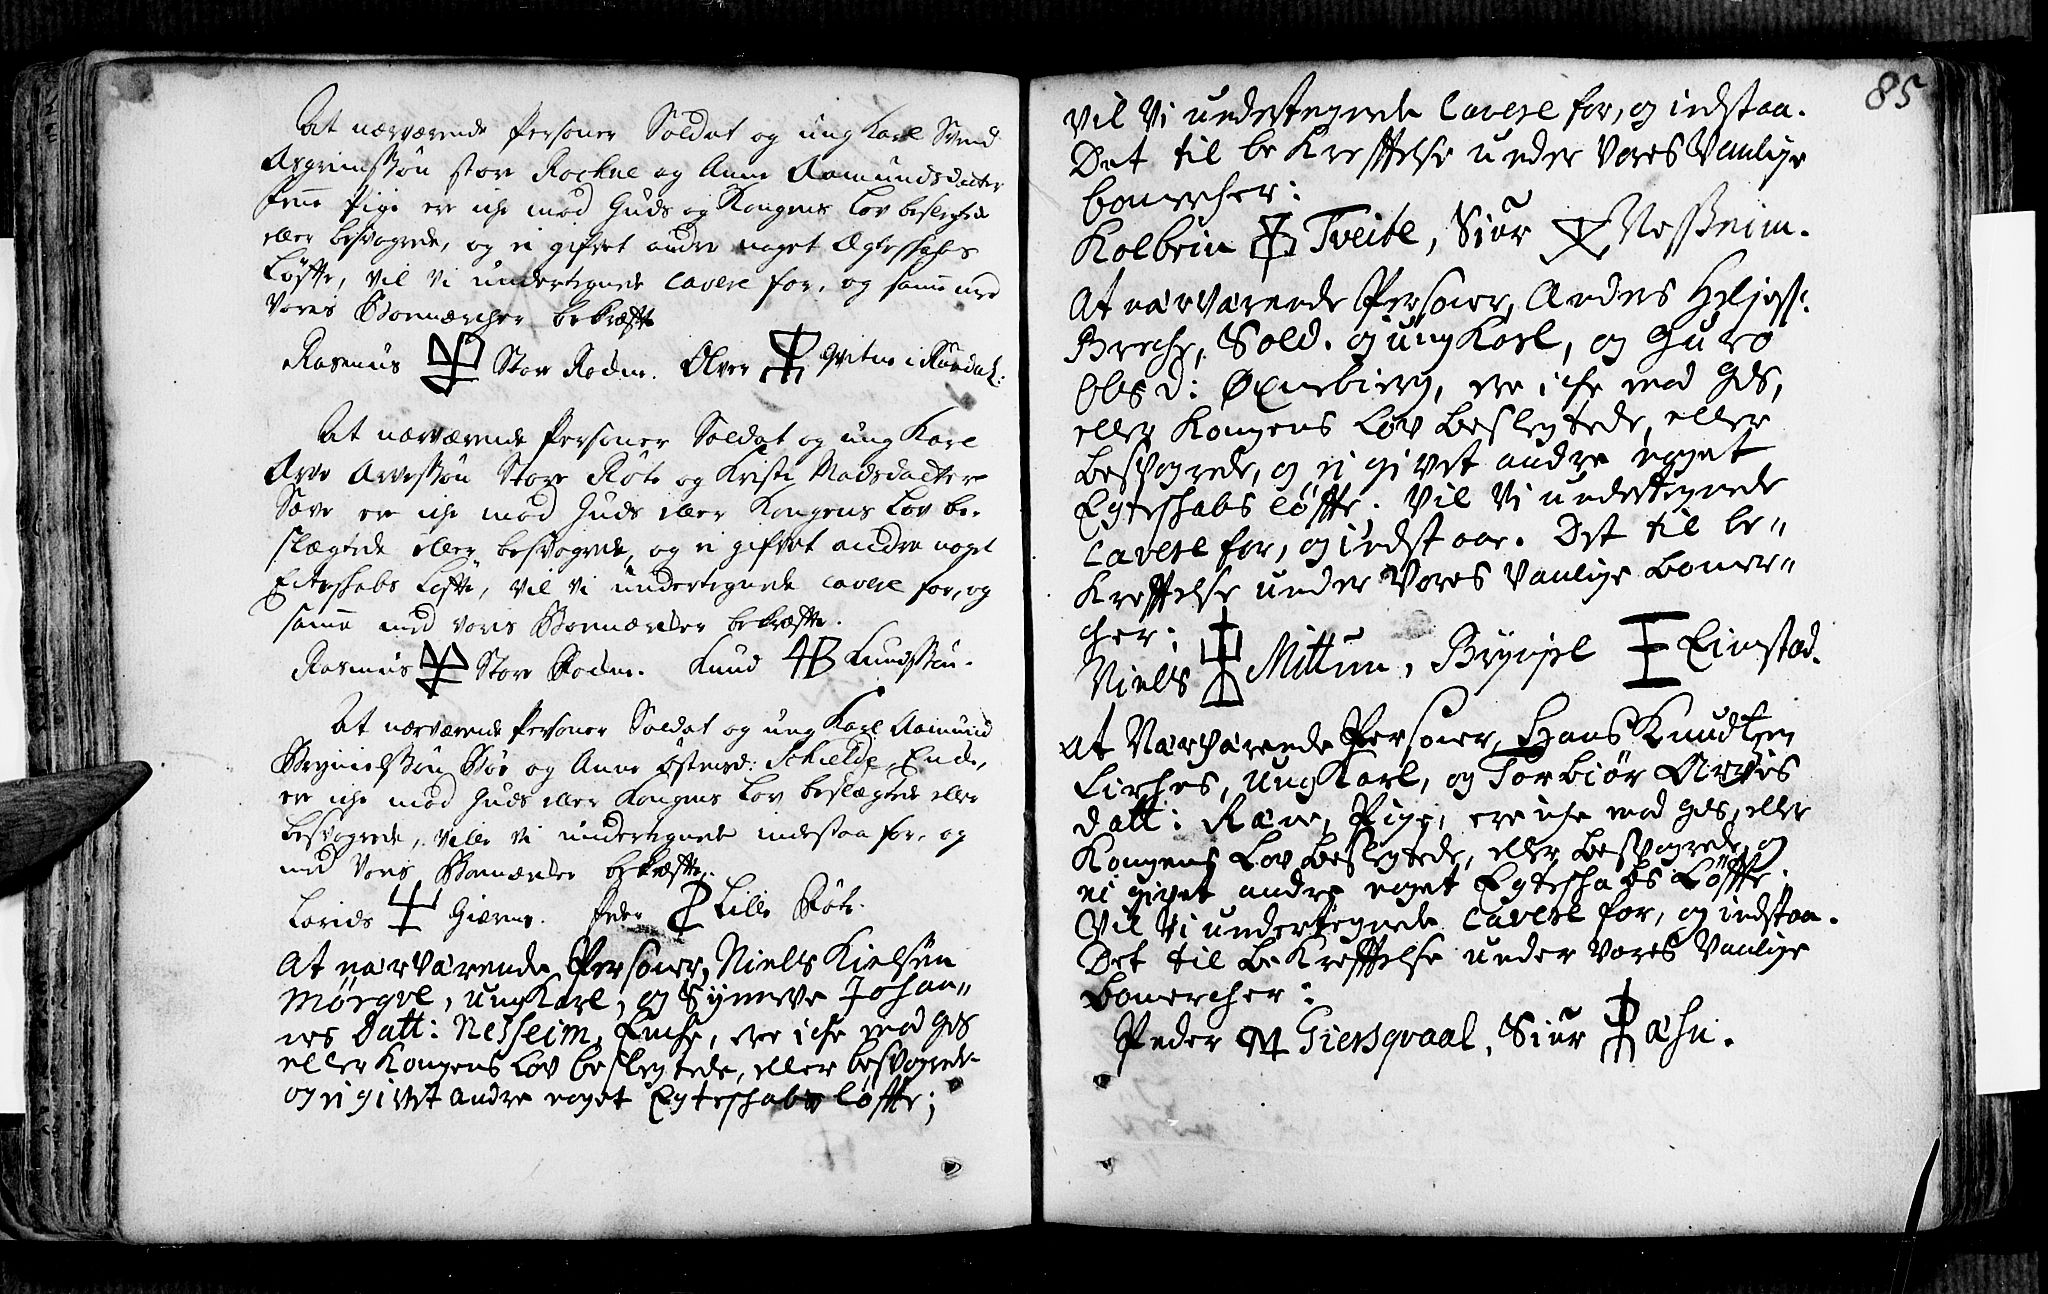 At nærværende Personer Soldat og ung Karl Svend
Asgrimssøn store Rockne og Anne Aamundsdatter
Pige er iche mod Guds og Kongens Lov beslegtede
eller besvogrede, og ei gifvet andre noget Ægteschabs
Løffte, vil vi undertegnede cavere for, og samme med
Voris Boemærcher bekræffte
Rasmus Store Rockne. Olver Qvitne i Rundal:
At nærværende Personer Soldat og ung Karl
Arve Arvessøn Store Røte og Kristi Madsdatter
Sæve er iche mod Guds eller Kongens Lov be-
slægtede eller besvogrede, og ei gifvet andre noget
Ecteschabs Løfte, vil vi undertegnede cavere for, og
samme med voris Boemærcker bekræffte.
Rasmus Store Rockne. Knud HB Knudssøn.
At nærværende Personer Soldat og ung Karl Aamund
Brynielssøn Bøe og Anne Østensd: Schielde, Encke,
er iche mod Guds eller Kongens Lov beslægtede eller
besvogrede, ville vi undertegnede indestaa for, og
med Voris Boemærcker bekræffte.
Lavids Gierme. Peder Lille Røte.
At nærværende Personer, Niels Kielsøn
Mørqve, ung Karl, og Synneve Johan"
nes Datt: Nesheim, Enche, ere iche mod Gds
eller Kongens Lov beslegtede, eller besvogrede
og ei givet andre noget Egteschabs løffte;
85
vil vi undertegnede cavere for, og indstaa.
Det til bekrefftelse under vores vanlige
bomercher:
Kolbein Tveite, Siur Nesheim.
At nærværende Personer, Andes Heljess:
Breche, Sold. og ung Karl, og Guro
Olsd: Øxnebierg, ere iche mod Gds,
eller Kongens Lov beslegtede, eller
besvogrede, og ei givet andre noget
Egteschabs løffte. Vil vi undertegnede
cavere for, og indstaae. Det til be"
krefftelse under vores vanlige bomer"
cher:
Niels Mittun, Brynjel Eimstad.
At Nærværende Personer, Hans Knudtsen
Lirhes, ung Karl, og Torbiør Arves
datt: Ræve, Pige, ere iche mod Gds, eller
Kongens Lov beslegtede, eller besvogrede, og
ei givet andre noget Egteschabs Løffte.
Vil vi undertegnede cavere for, og indstaa.
Det til bekrefftelse under vores vanlige
Bomercher:
Peder Giersqvaal, Siur Æshn.